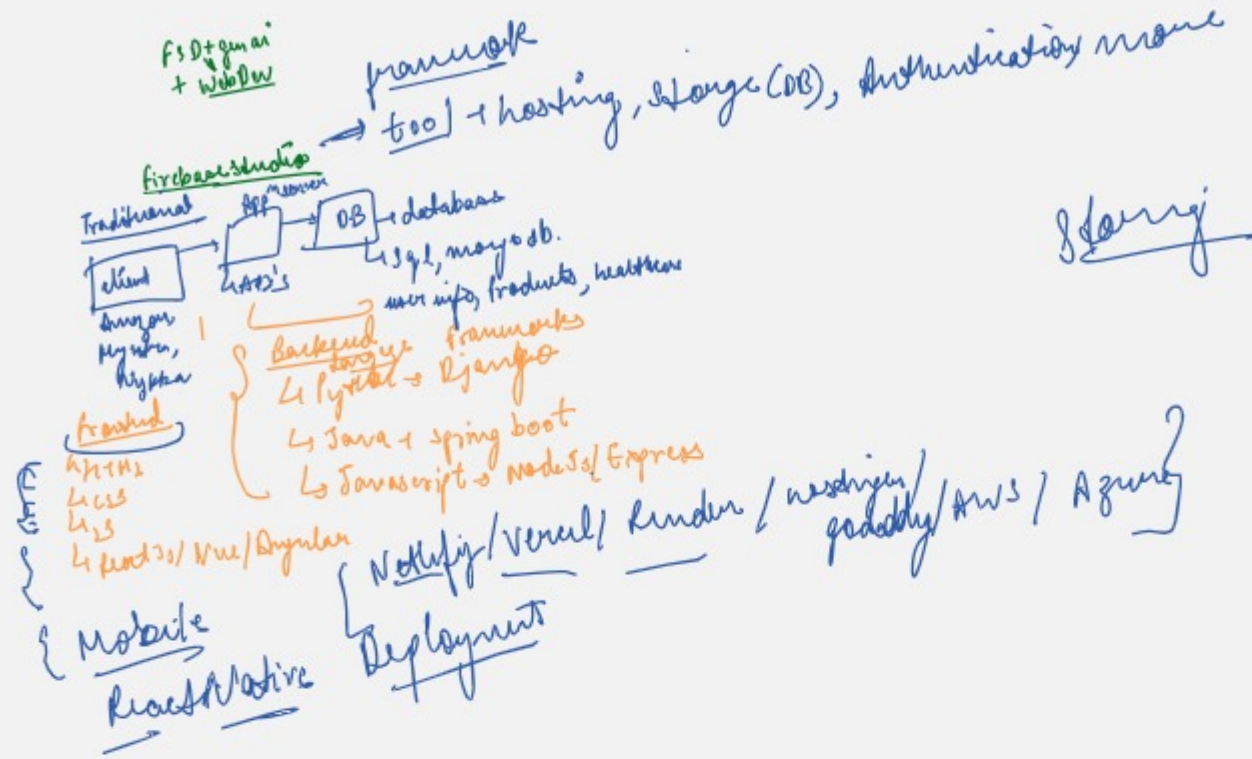 FSD + gen ai
+ WebDev
framework
tool → hosting, Storge (DB), Authentication, more
firebase studio
Traditional
client
App server
↳ API's
DB → database
↳ Sql, mongodb.
user info, Products, healthcare
Amazon
Myntra,
Nykka
Backend
Frameworks
↳ Python → Django
↳ Java → spring boot
↳ Javascript → NodeJs/Express
frontend
↳ CSS
↳ JS
↳ ReactJs/Vue/Angular
Netlify/Vercel/Render/
godaddy/AWS/Azure
Deployment
Mobile
React Native